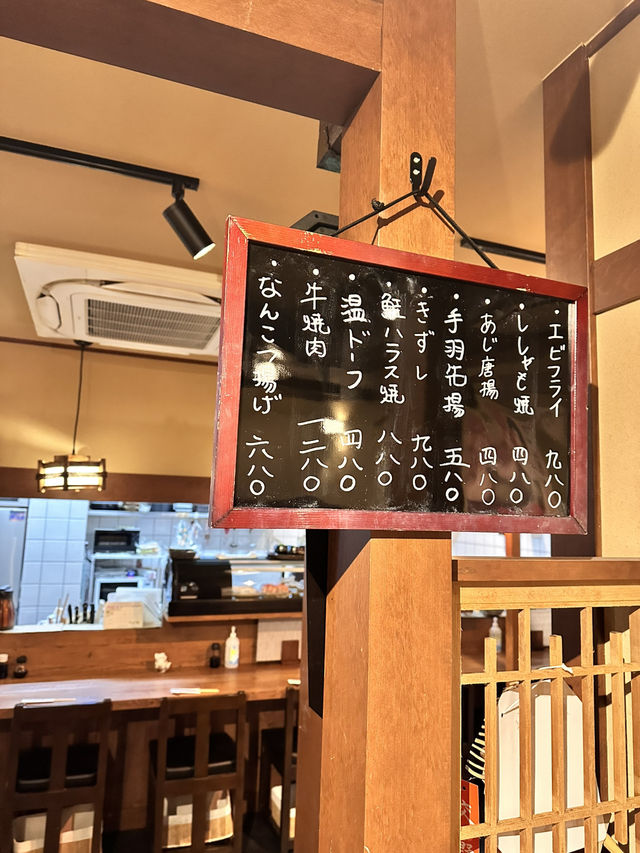 ・エビフライ 九八〇
・ししゃも焼 四八〇
・あじ唐揚 四八〇
・手羽先揚 五八〇
・きずし 九八〇
・鮭ハラス焼 八八〇
・温ドーフ 四八〇
・牛焼肉 一二八〇
・なんこつ揚げ 六八〇